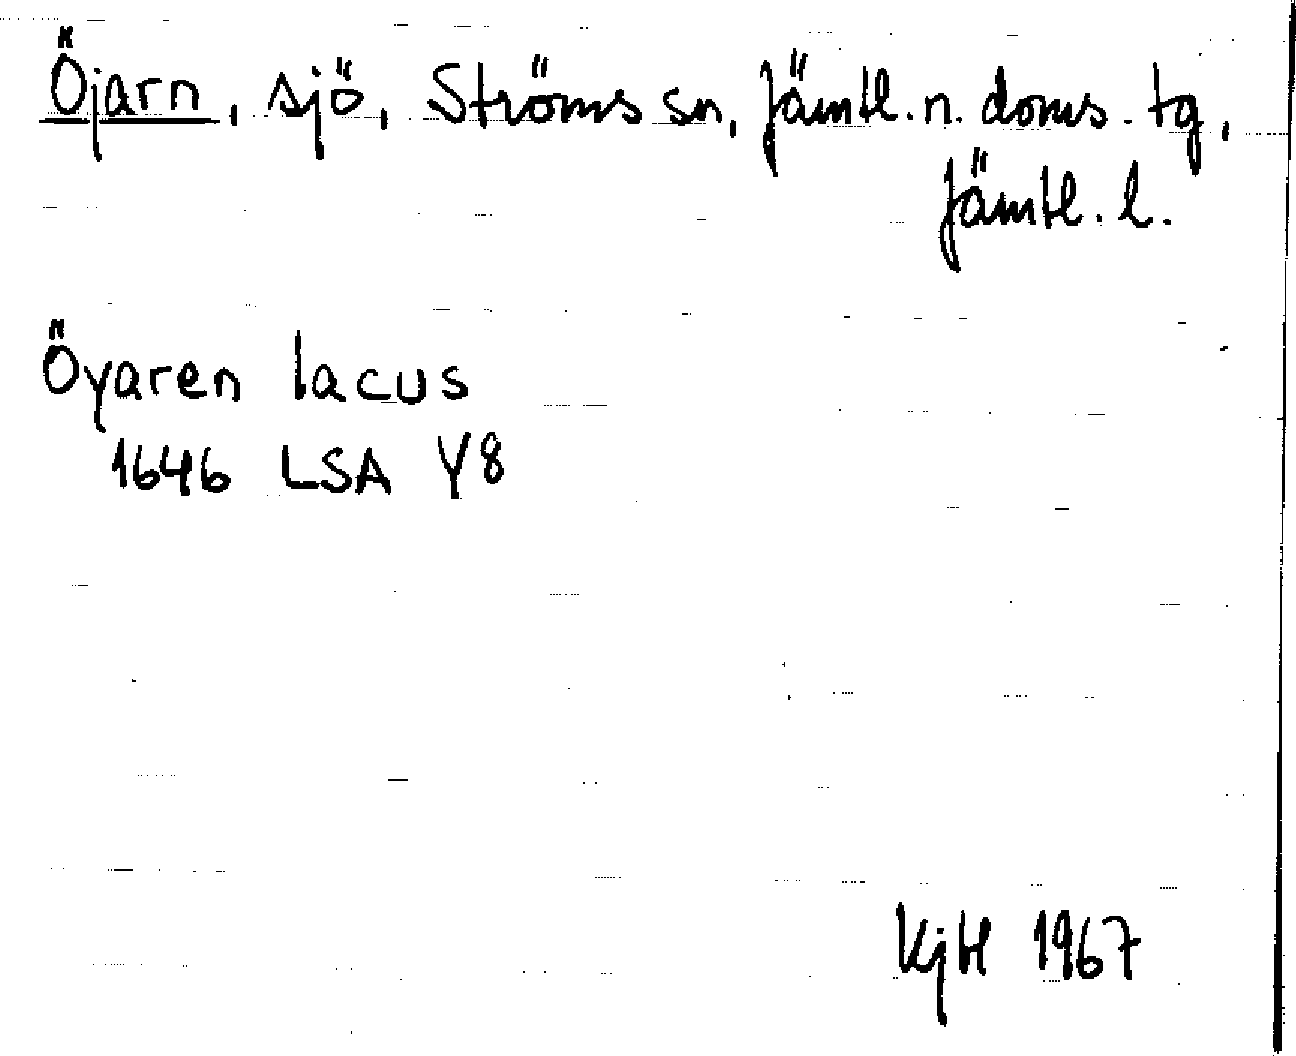 Öjarn, sjö, Ströms sn, Jämtl. n. doms. tg,
Jämtl. l.
Öyaren lacus
1646 LSA Y8
KjH 1967